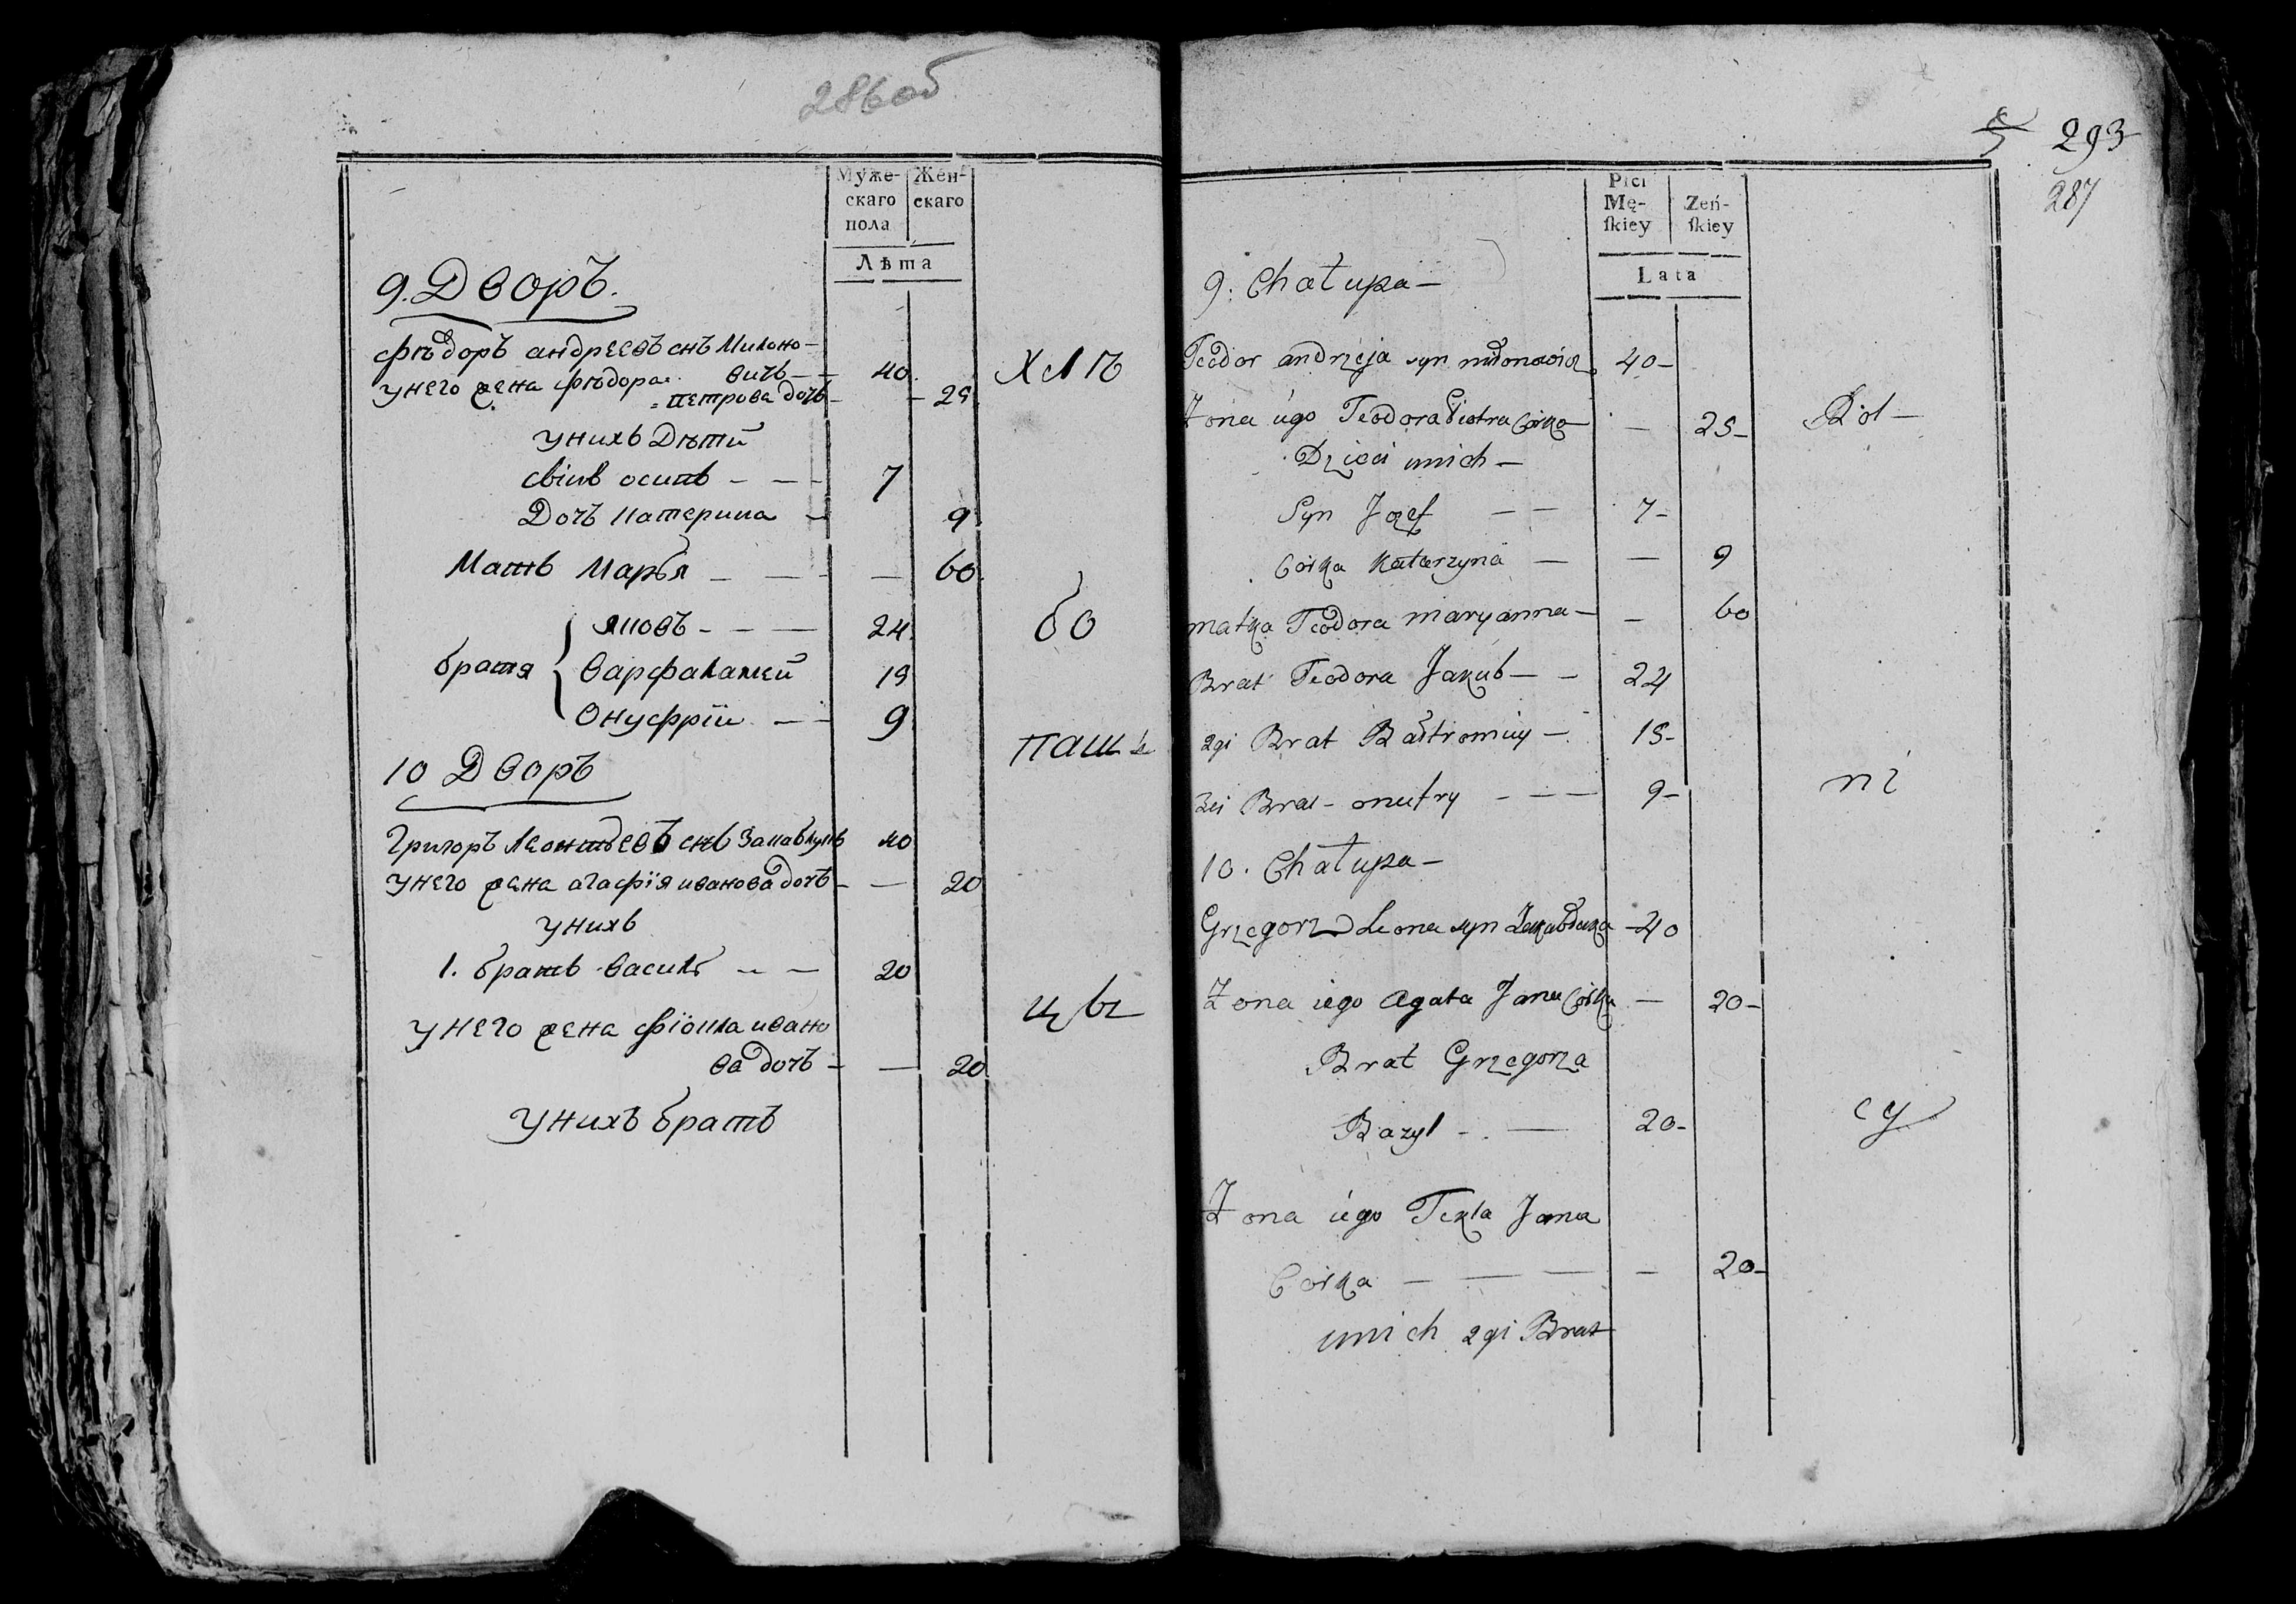 286об
Муже-
скаго
пола
Жен-
скаго
Лѣта
9. Дворъ.
Фѣдоръ андреевъ снъ Милоно-
вичъ — 40
унего жена фѣдора
петрова дочь — 25
унихъ Дѣти
сынъ осипъ — — 7
Дочь катерина — 9
Мать Марья — — — 60
братя { яковъ — — — 24
варфаламей 19
Онуфрій — 9
10 Дворъ
Григоръ Леонтьевъ снъ 40
унего жена агафія иванова дочь — — 20
унихъ
1. братъ василь — — 20
унего жена фіокла ивано
ва дочь — — 20
унихъ братъ
хлѣ
бо
паш
цы
293
287
Płci
Mę-
skiey
Zeń-
skiey
Lata
9: Chałupa —
Teodor andrzeja syn 40 —
Żona iego Teodora Piotra Corka — — 25 —
Dzieci unich —
Syn Jozef — — 7 —
Corka Katarzyna — — 9
matka Teodora maryanna — — 60
Brat Teodora Jakub — — 24
2gi Brat Bartłomiey — 19 —
3ci Brat — onufry — — — 9 —
10. Chałupa —
Grzegorz Leona syn — 40
Żona iego Agata Jana Corka — 20 —
Brat Grzegorza
Bazyl — — 20 —
Żona iego Tekla Jana
Corka — — — — 20 —
unich 2gi Brat
Rol —
ni
cy